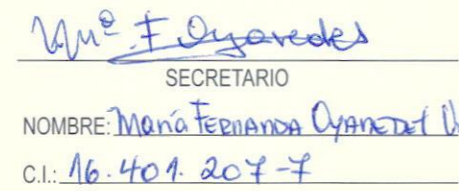 Mª F Oyanedel
SECRETARIO
NOMBRE: María FERNANDA OYANEDEL
C.I.: 16.401.207-7